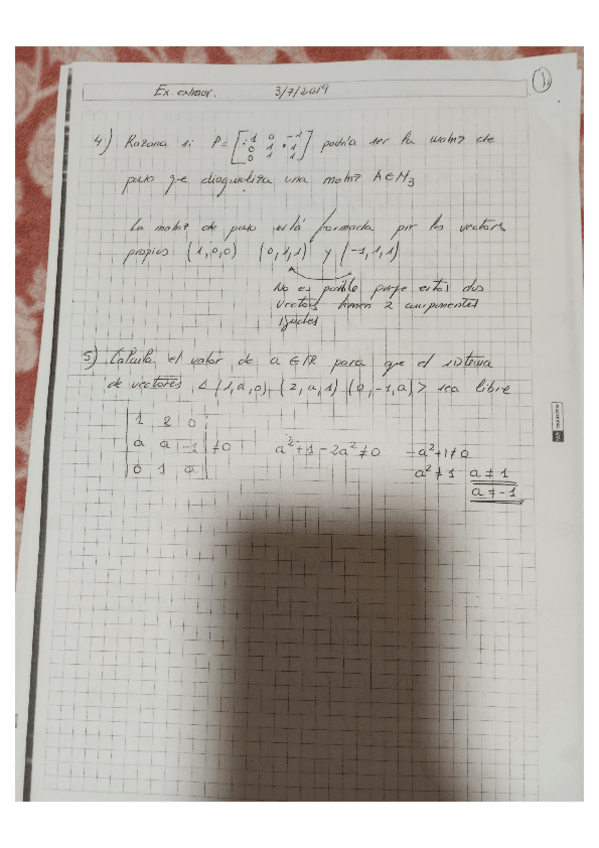 Ex. extraor. 3/7/2019
1.
4) Razona si P= [1 0 -1
0 1 1
0 1 1] podría ser la matriz de
paso que diagonaliza una matriz A∈M3
La matriz de paso está formada por los vectores
propios (1,0,0) (0,1,1) y (-1,1,1)
No es posible porque estos dos
vectores tienen 2 componentes
iguales
5) Calcula el valor de a ∈ IR para que el sistema
de vectores < (1,a,0), (2,a,1) (0,-1,a) > sea libre
|1 2 0|
|a a -1| ≠0 a²+1-2a²≠0 -a²+1≠0
|0 1 a| a²≠1 a≠1
a≠-1